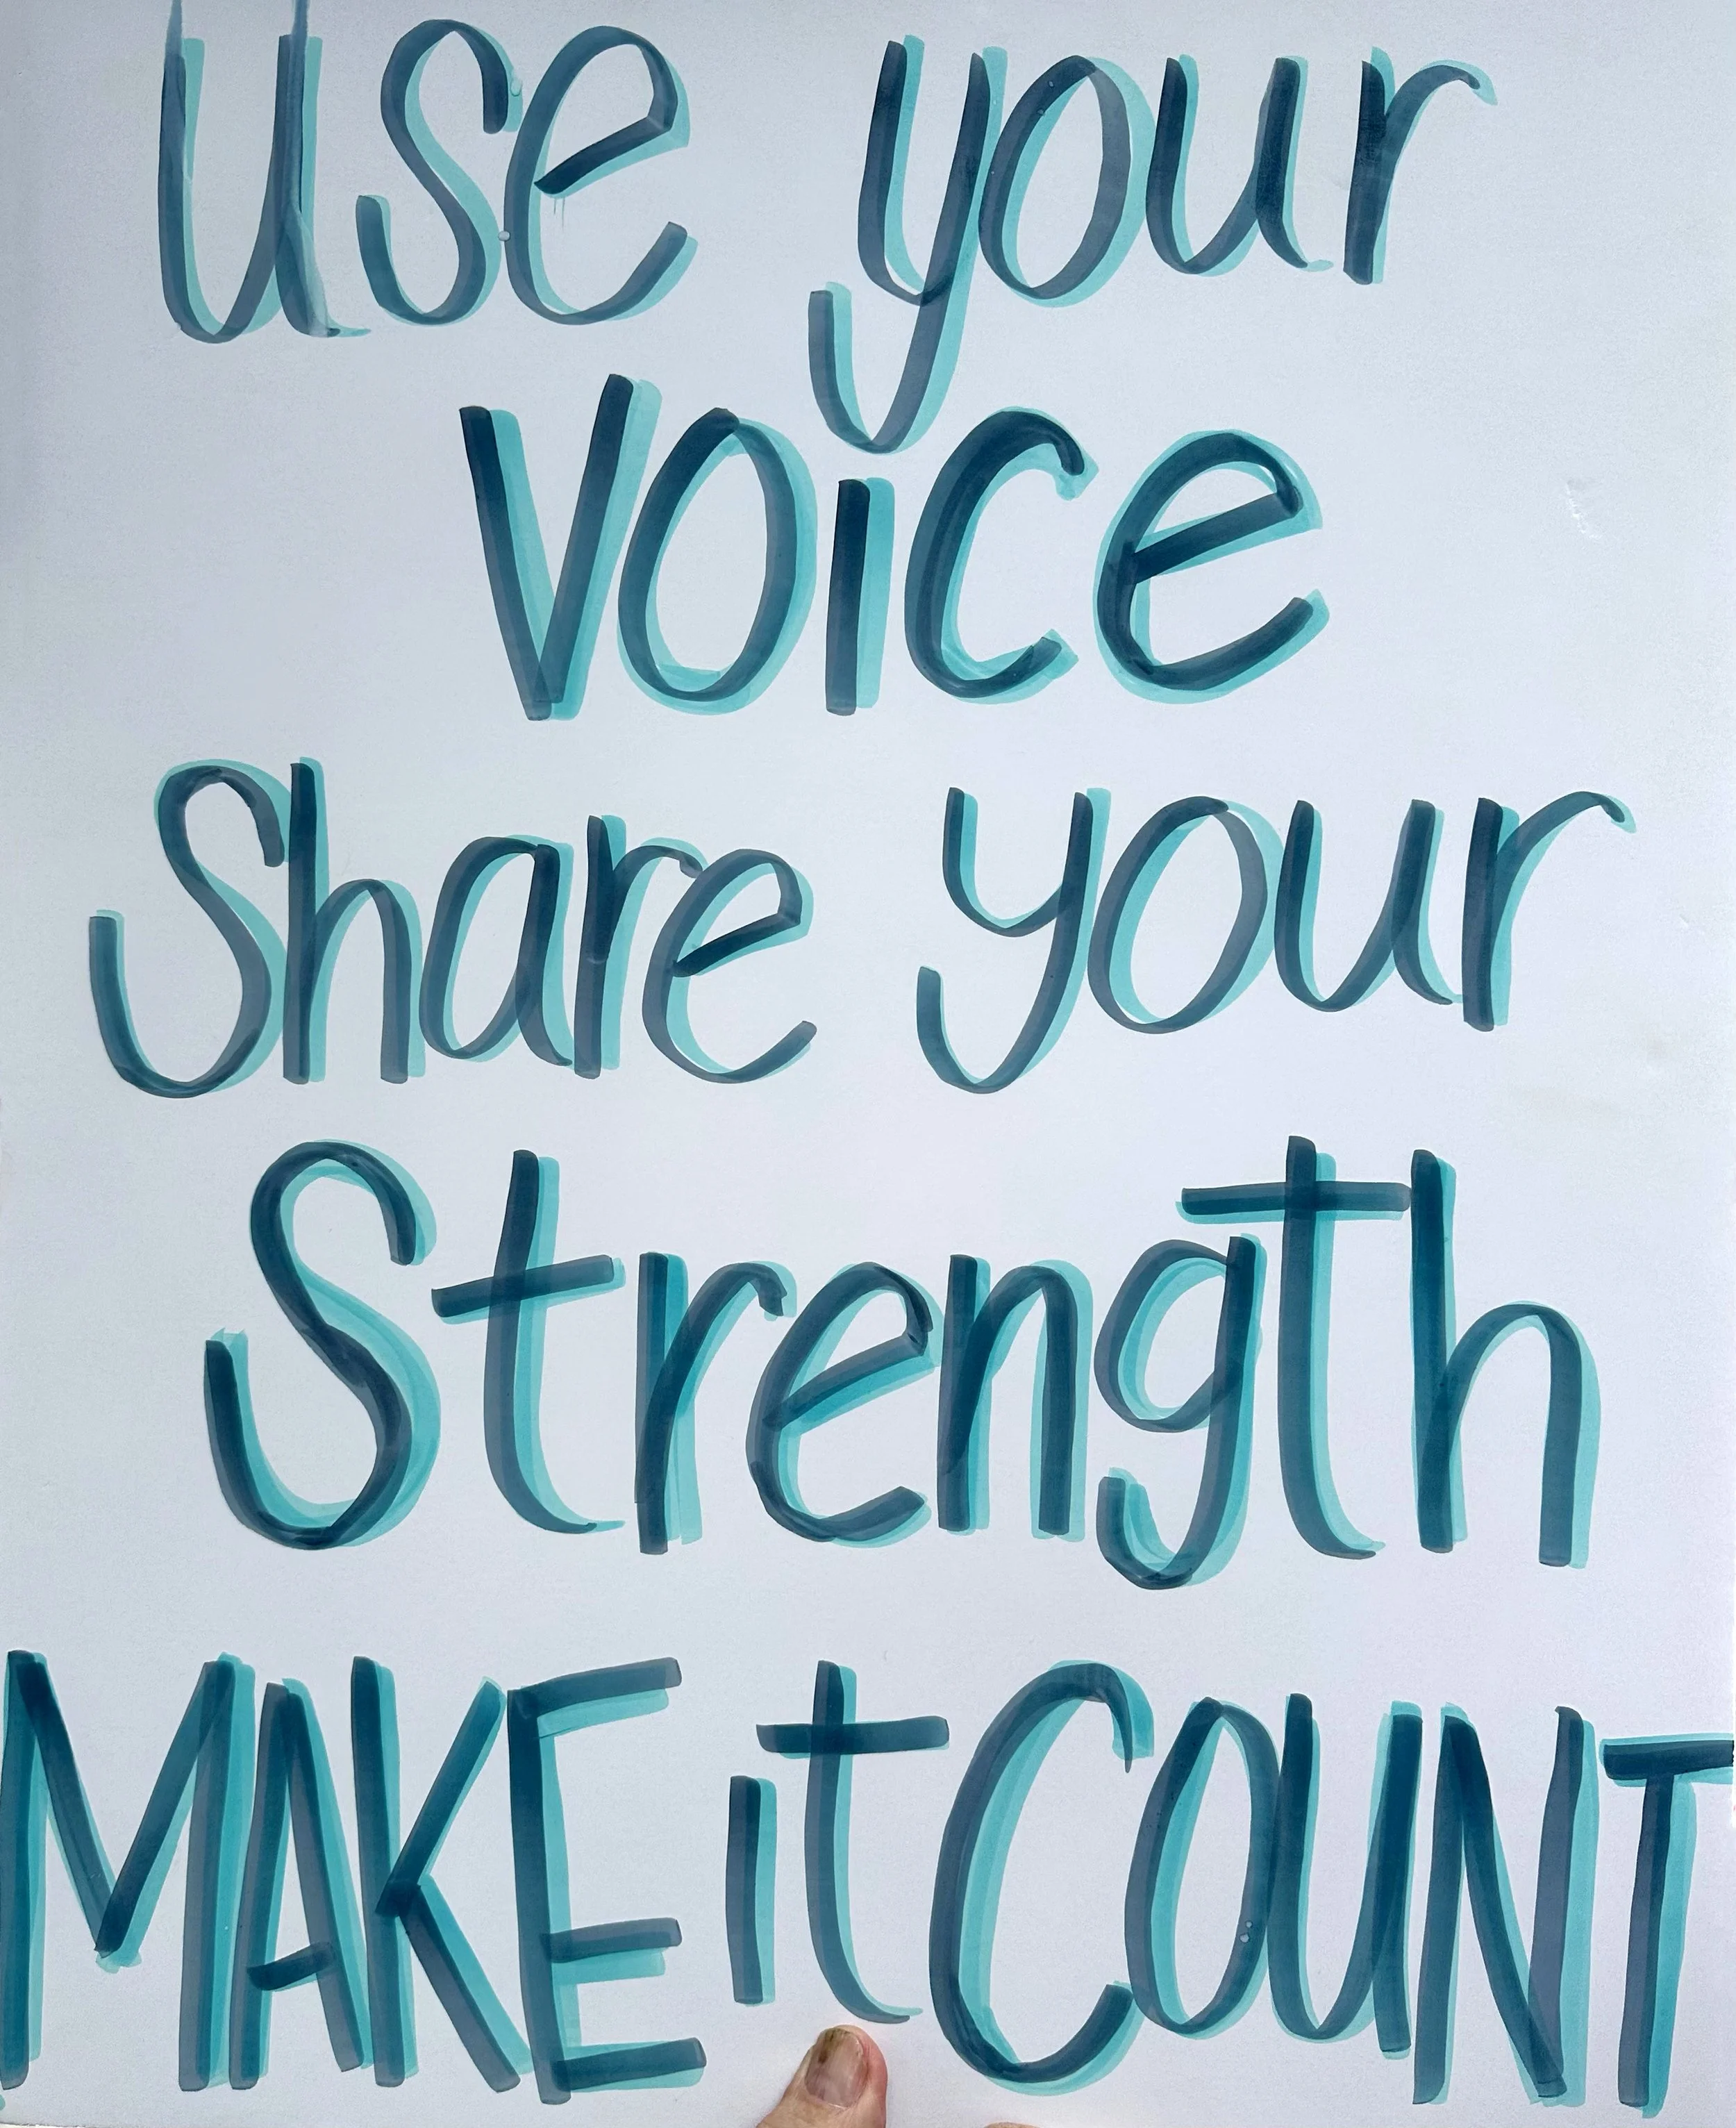 Use your
Voice
Share your
Strength
MAKE it COUNT